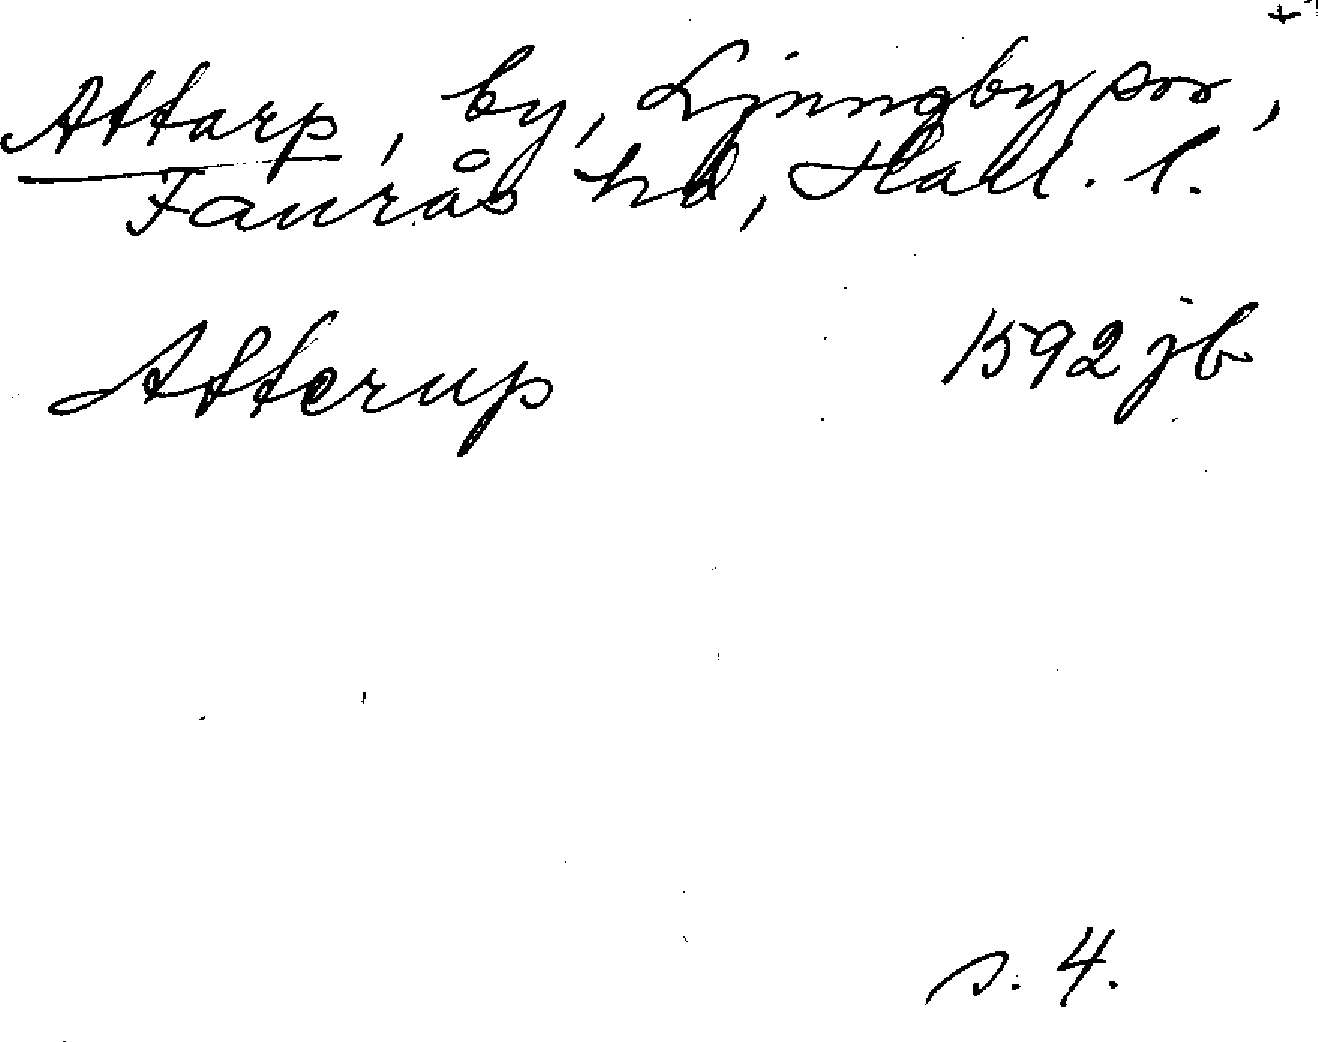 Attarp, by, Ljungby sn,
Faurås hd, Hall. l.
Atterup 1592 jb
s. 4.